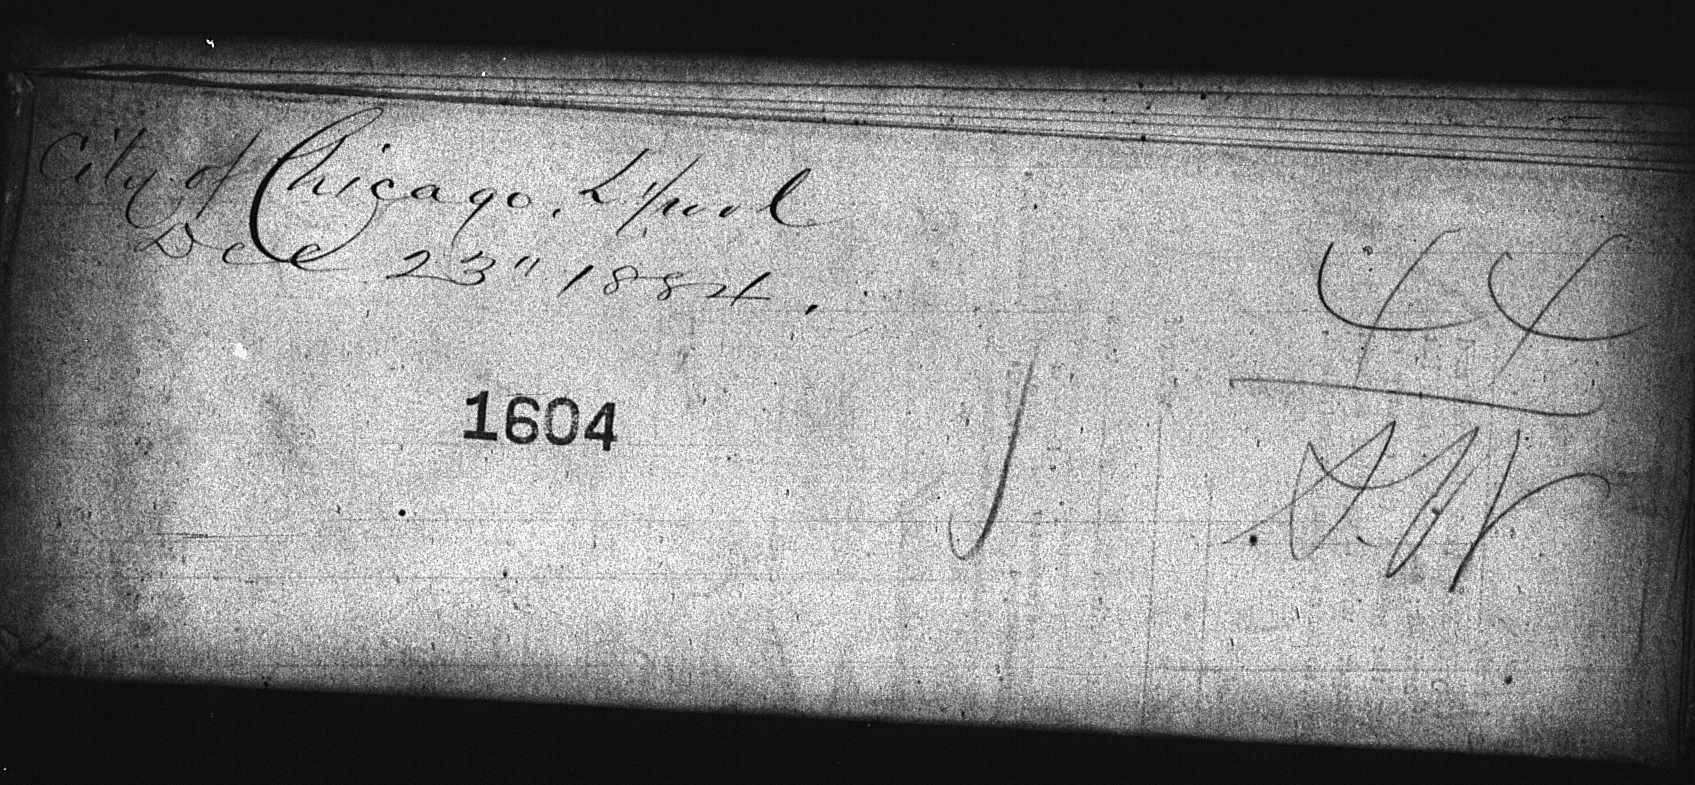 City of Chicago. L'pool
Dec 23" 1884.
44
1604